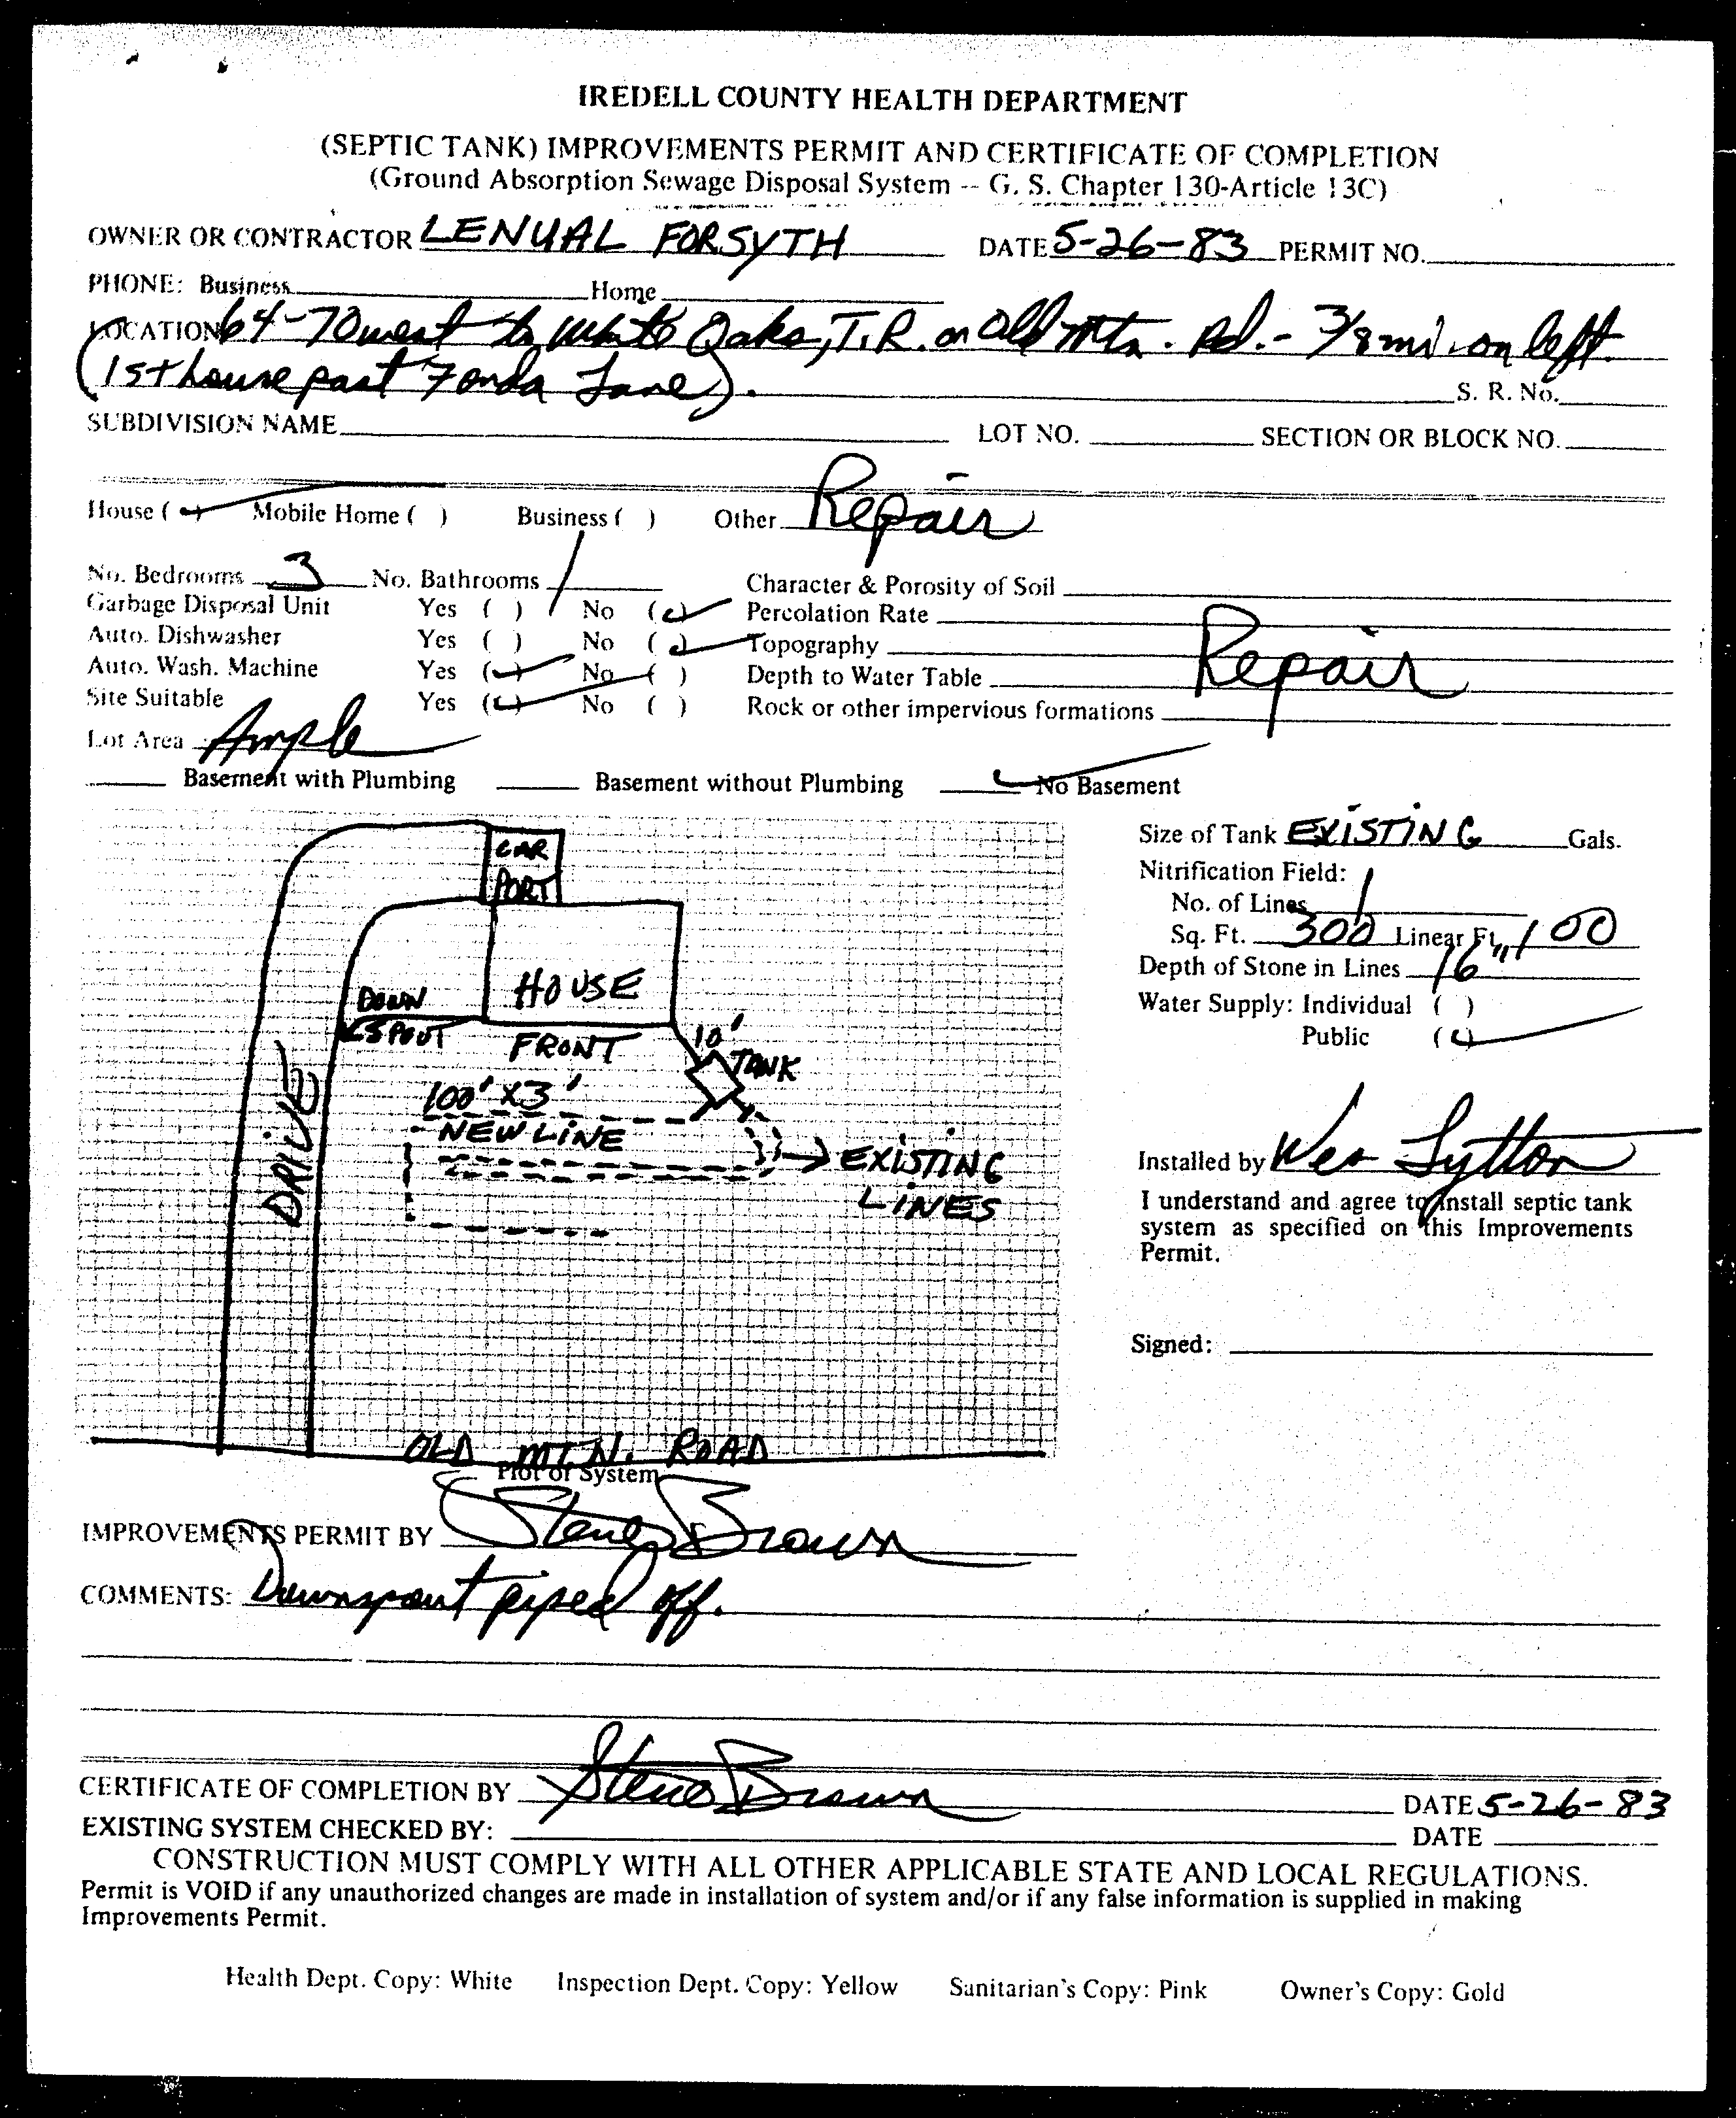 IREDELL COUNTY HEALTH DEPARTMENT
(SEPTIC TANK) IMPROVEMENTS PERMIT AND CERTIFICATE OF COMPLETION
(Ground Absorption Sewage Disposal System -- G. S. Chapter 130-Article 13C)
OWNER OR CONTRACTOR LENUAL FORSYTH DATE 5-26-83 PERMIT NO.
PHONE: Business Home
LOCATION 64-70 west to White Oaks, T.R. on Old Mtn. Rd. - 3/8 mi. on left.
(1st house past Fonda Lane). S. R. No.
SUBDIVISION NAME LOT NO. SECTION OR BLOCK NO.
House ( ✓ ) Mobile Home ( ) Business ( ) Other Repair
No. Bedrooms 3 No. Bathrooms 1 Character & Porosity of Soil
Garbage Disposal Unit Yes ( ) No (✓) Percolation Rate
Auto. Dishwasher Yes ( ) No (✓) Topography
Auto. Wash. Machine Yes (✓) No ( ) Depth to Water Table Repair
Site Suitable Yes (✓) No ( ) Rock or other impervious formations
Lot Area Ample
Basement with Plumbing Basement without Plumbing ✓ No Basement
Size of Tank EXISTING Gals.
Nitrification Field:
No. of Lines 1
Sq. Ft. 300 Linear Ft. 100
Depth of Stone in Lines 16"
Water Supply: Individual ( )
Public (✓)
Installed by Wes Lytton
I understand and agree to install septic tank
system as specified on this Improvements
Permit.
Signed:
CAR
PORT
HOUSE
DOWN
SPOUT
FRONT
10'
TANK
100' X 3'
NEW LINE
EXISTING
LINES
DRIVE
OLD MTN. ROAD
Plot of System
IMPROVEMENTS PERMIT BY Steve Brown
COMMENTS: Downspout piped off.
CERTIFICATE OF COMPLETION BY Steve Brown DATE 5-26-83
EXISTING SYSTEM CHECKED BY: DATE
CONSTRUCTION MUST COMPLY WITH ALL OTHER APPLICABLE STATE AND LOCAL REGULATIONS.
Permit is VOID if any unauthorized changes are made in installation of system and/or if any false information is supplied in making
Improvements Permit.
Health Dept. Copy: White Inspection Dept. Copy: Yellow Sanitarian's Copy: Pink Owner's Copy: Gold